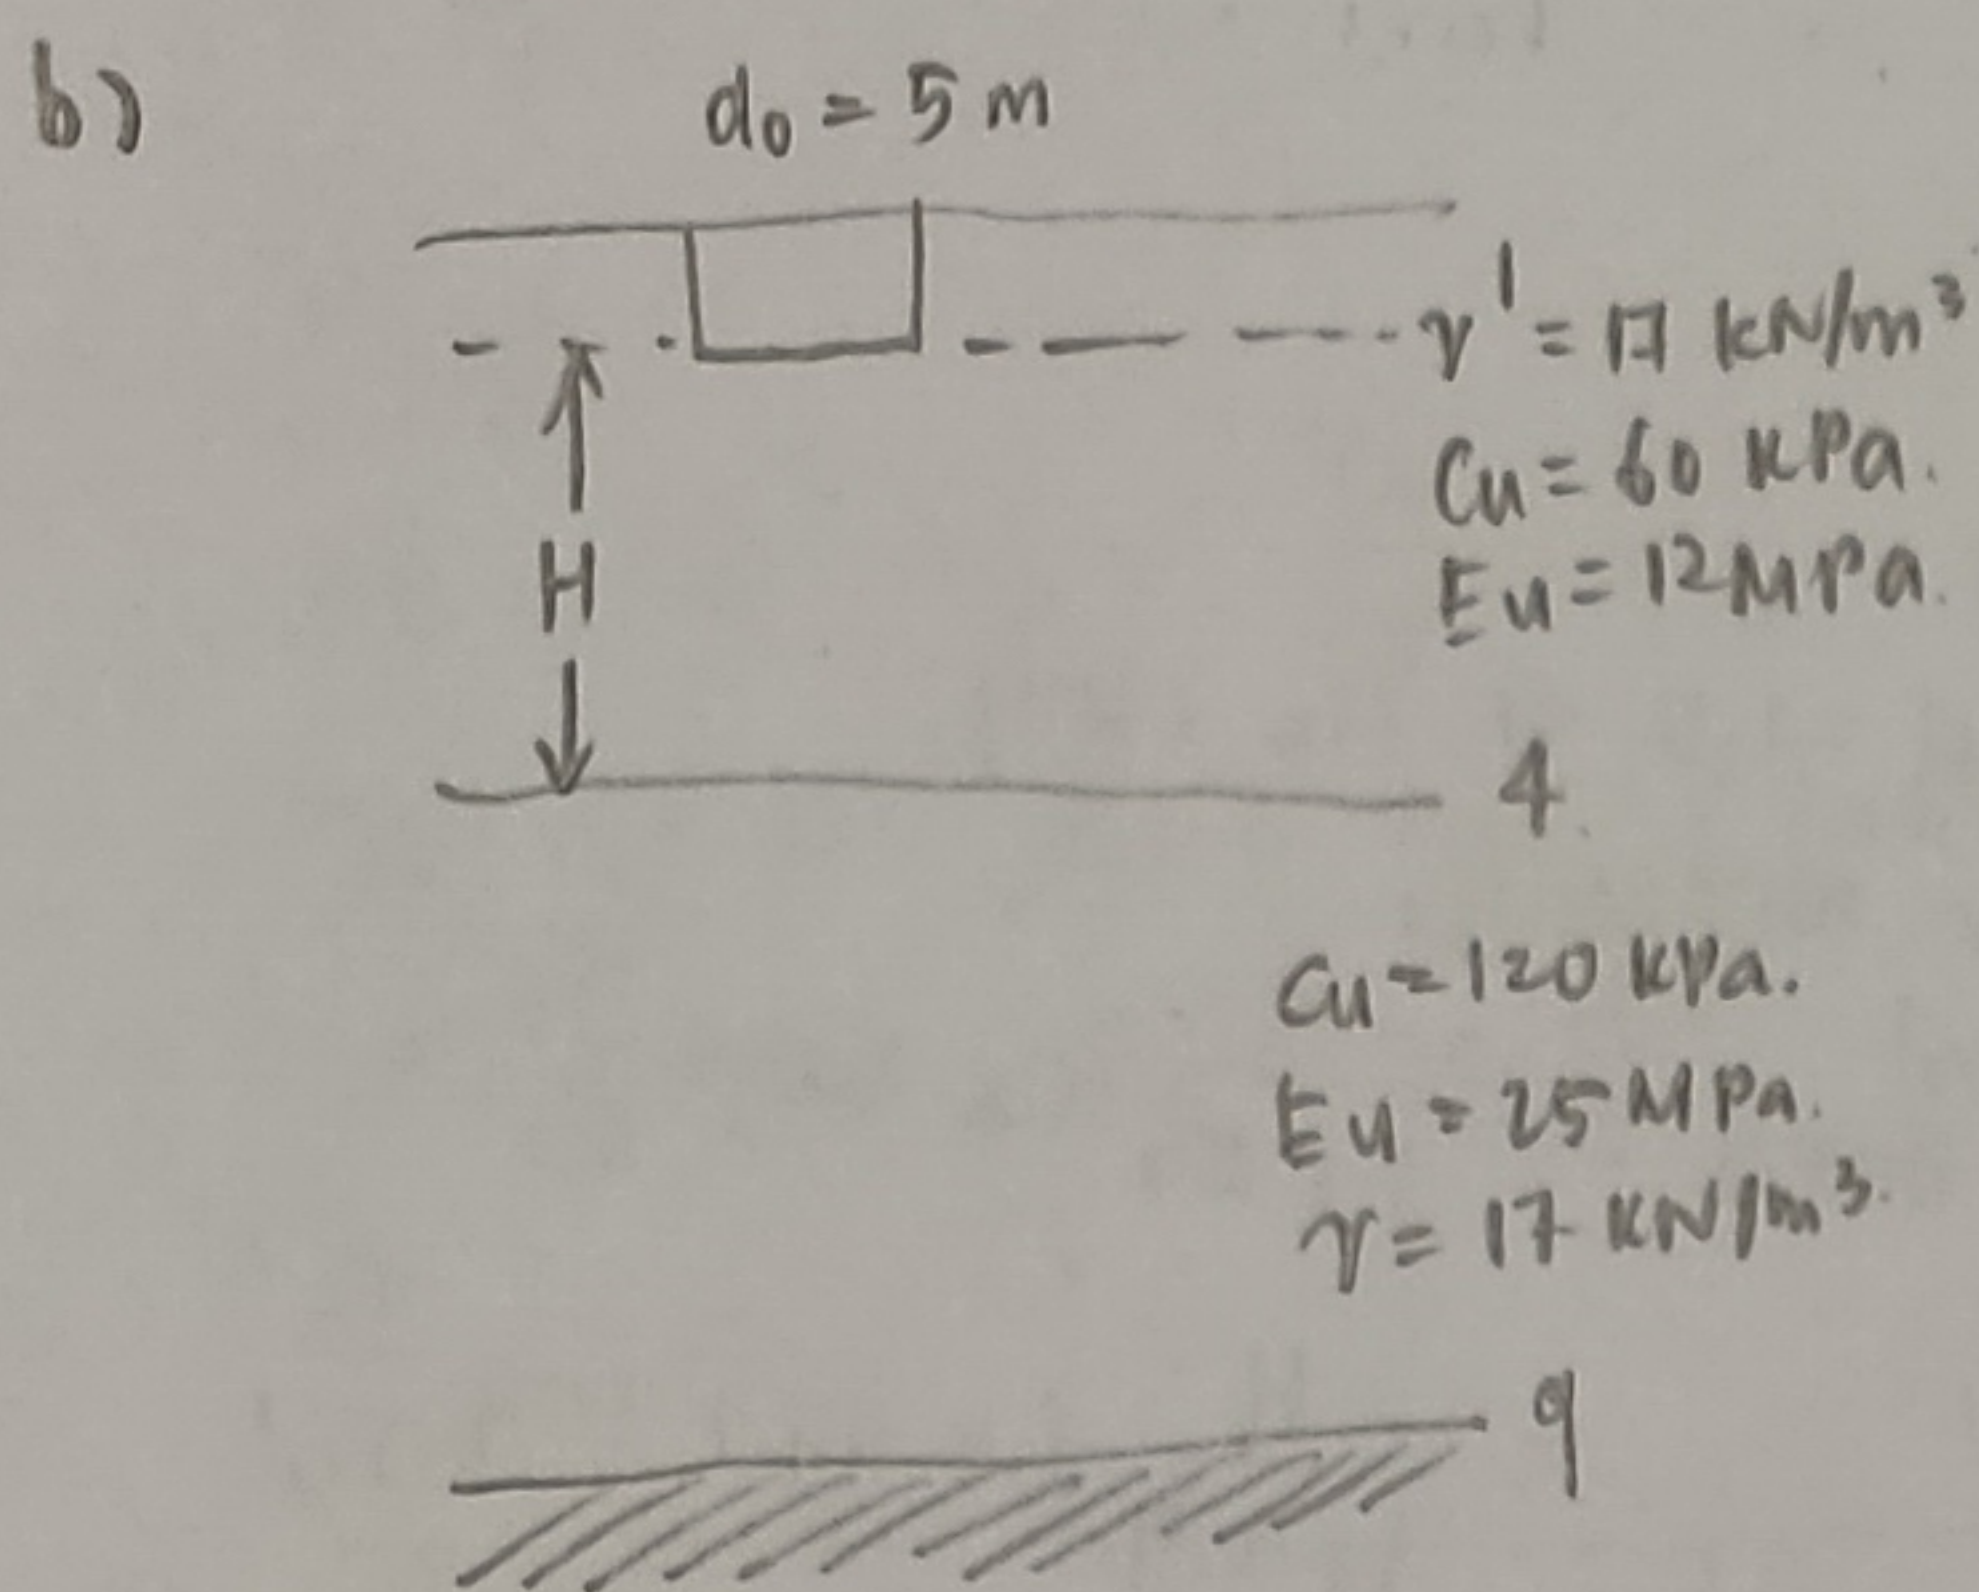 b)
do = 5 m
γ' = 17 kN/m³
Cu = 60 kPa.
Eu = 12 MPa.
H
4
Cu = 120 kPa.
Eu = 25 MPa.
γ = 17 kN/m³.
9